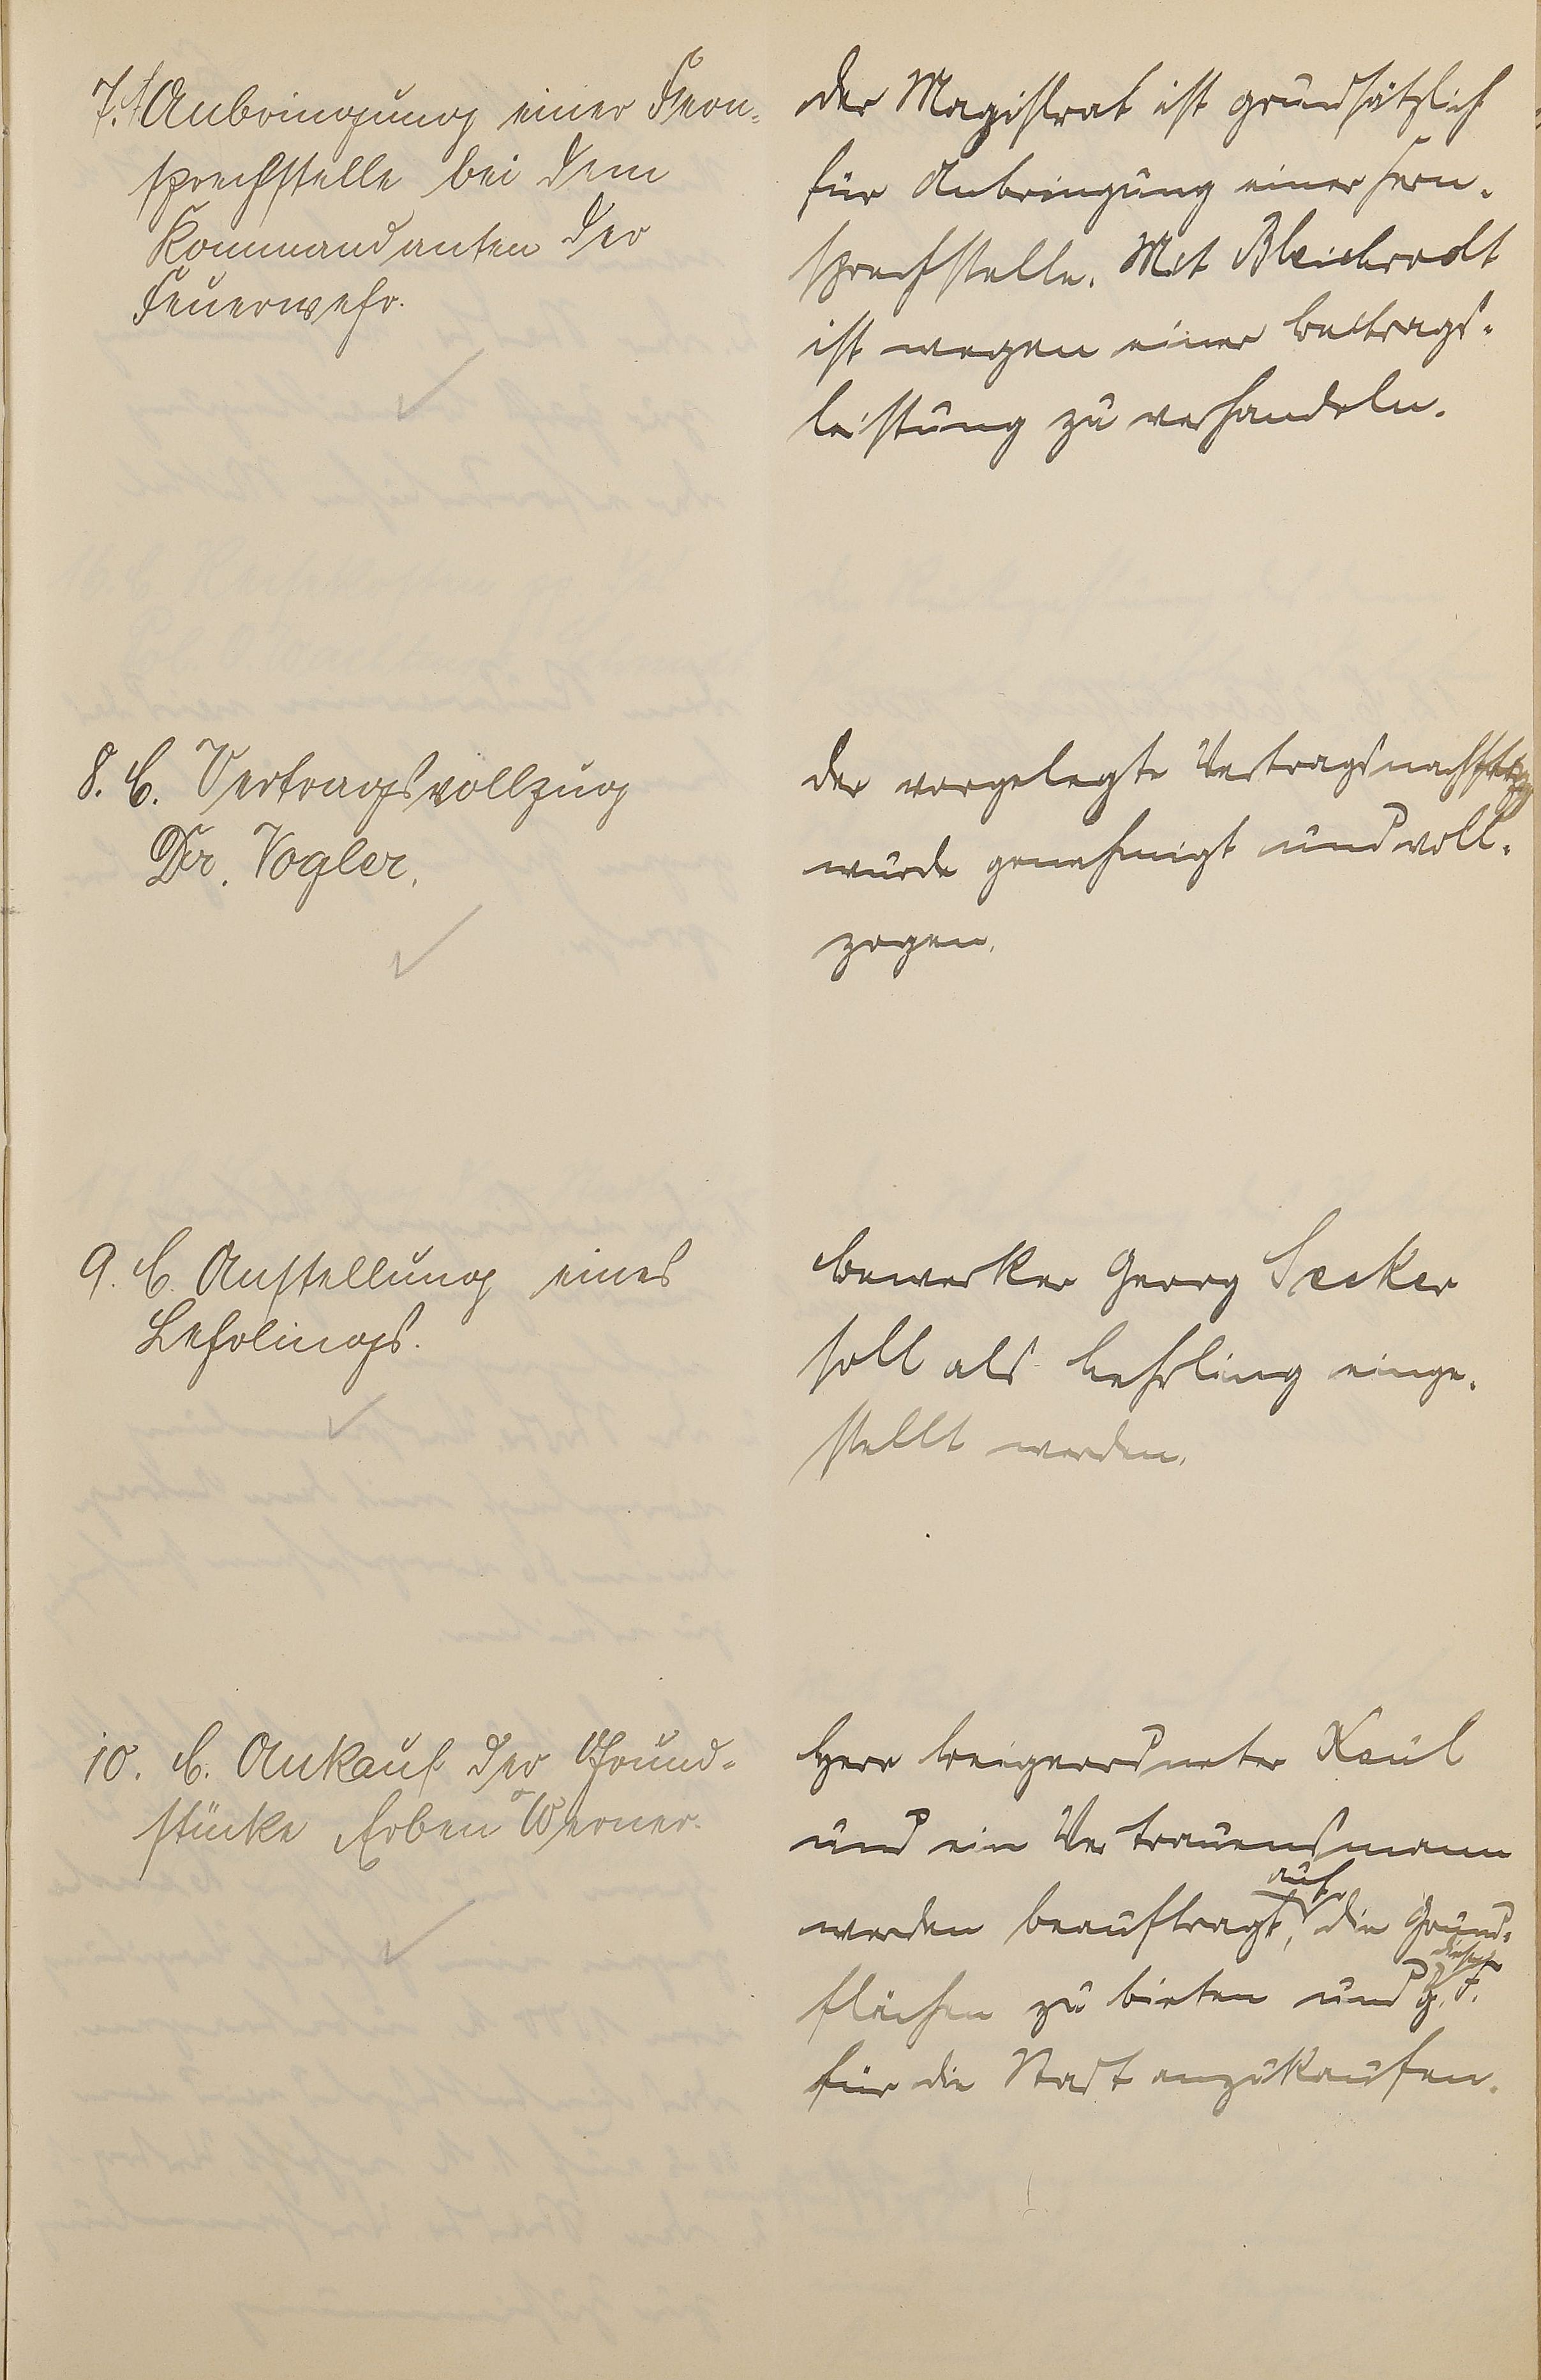 7. Anbringung einer Fern-
sprechstelle bei dem
Kommandanten der
Feuerwehr.
Der Magistrat ist grundsätzlich
für Anbringung einer Fern-
sprechstelle. Mit Bleichrodt
ist wegen einer Beitrags-
leistung zu verhandeln.
8. C. Vertragsvollzug
Dr. Vogler.
Der vorgelegte
wurde genehmigt und voll-
zogen.
9. C. Anstellung eines
Lehrlings.
Bewerber Georg Secker
soll als Lehrling einge-
stellt werden.
10. C. Ankauf der Grund-
stücke Erben Werner.
Herr Beigeordneter Keul
und ein Vertrauensmann
werden beauftragt, auf die Grund-
flächen zu bieten und diese g. F.
für die Stadt anzukaufen.